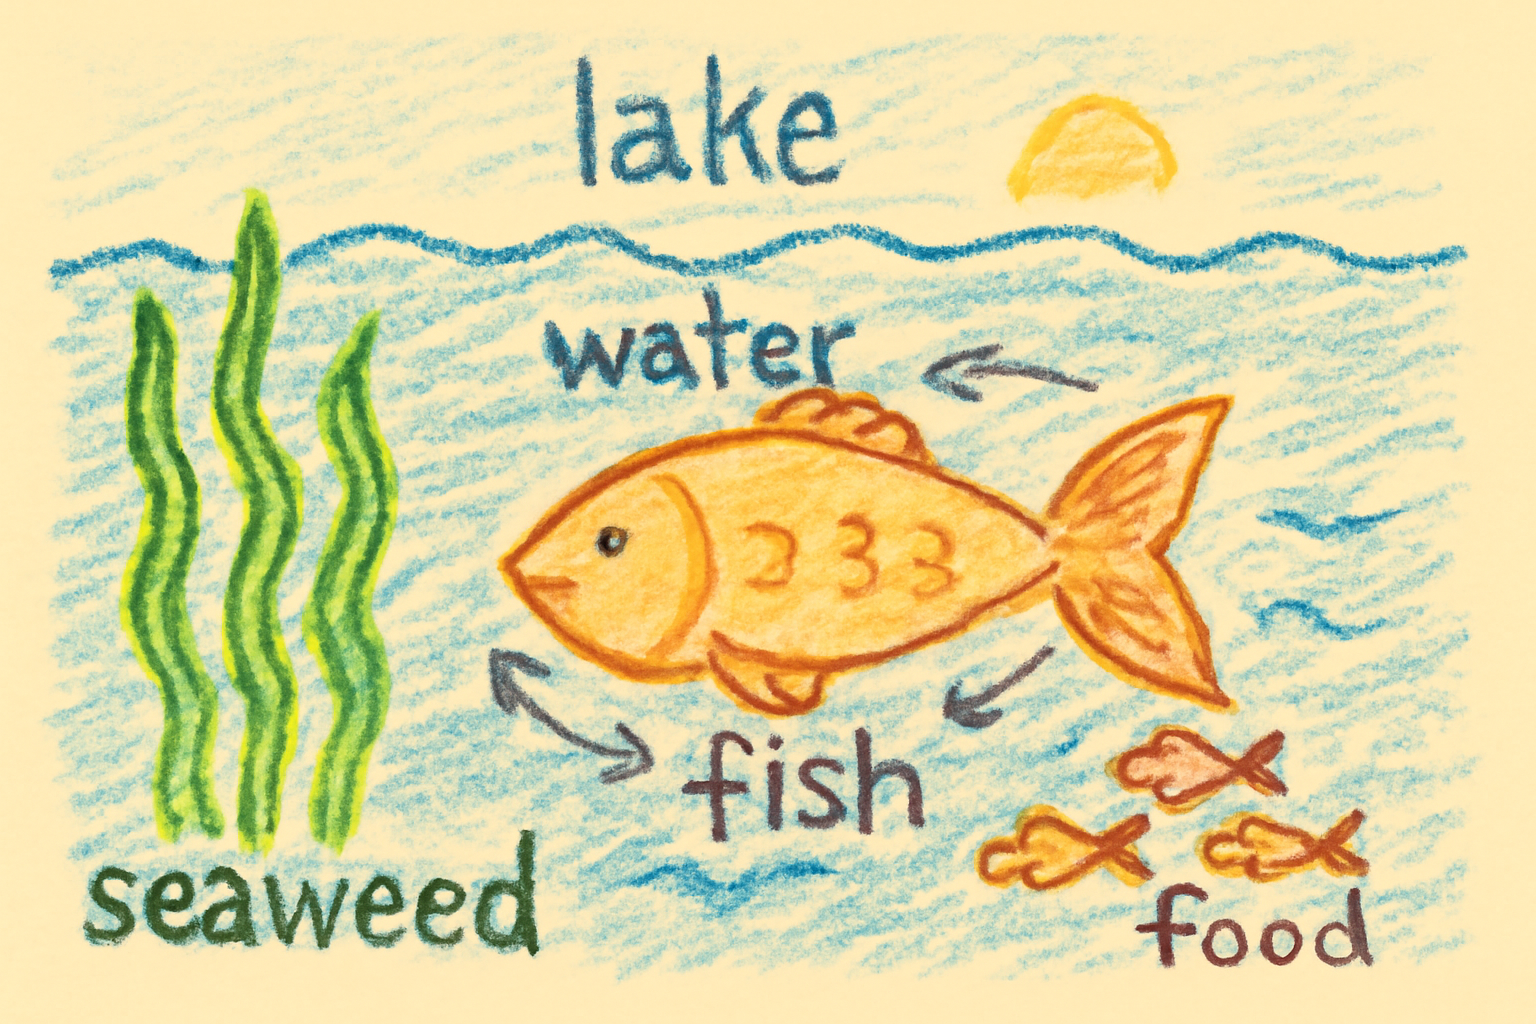 lake
water
fish
seaweed
food